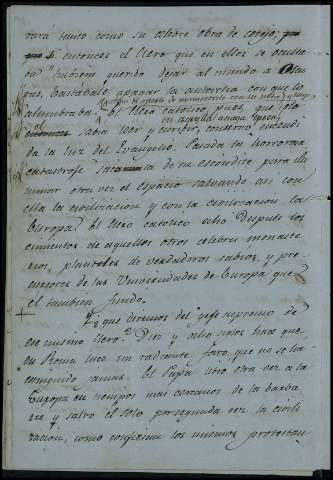 rará tanto como su celebre obra de consejo; pro
pro Si entonces el Clero que en ellos se oculta
ba hubiera querido dejar al mundo a oscu
ras, bastabale apagar la antorcha con que lo
alumbraba. El Clero catolico, pues, que solo
en aquella aciaga época,
el sabia leer y escribir, conservó encendi
da la luz del Evangelio. Pasada la horrorosa
catastrofe de su escondite para ilu
minar otra vez el espacio salvando asi con
ella la civilizacion y con la civilizacion la
Europa. El Clero catolico echo después los
cimientos en aquellos otros celebres monaste
rios, planteles de verdaderos sabios, y pre
cursores de las Universidades de Europa que
el tambien fundo.
Y que diremos del gefe supremo de
ese mismo Clero? Diez y ocho siglos hace que
en Roma luce un radiante faro, que no se ha
estinguido jamas. El Papa libro otra vez a la
Europa en tiempos mas cercanos de la barba
rie y salvo el solo por segunda vez la civili
zacion, como confiesan los mismos protestan